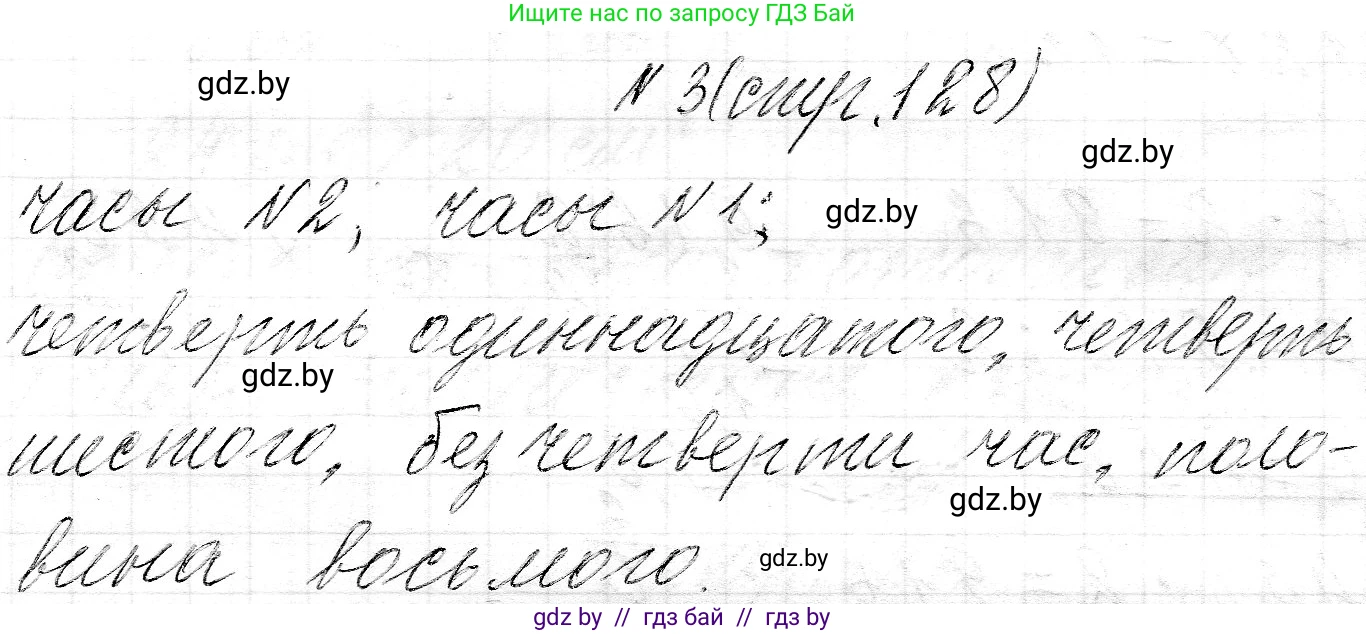 Ищите нас по запросу ГДЗ Бай
gdz.by
N 3(стр.128)
gdz.by
часы N2; часы N1;
gdz.by
четверть одиннадцатого, четверть
gdz.by
шестого, без четверти час, поло-
gdz.by
вина восьмого.
gdz.by
gdz.by // гдз бай // gdz.by